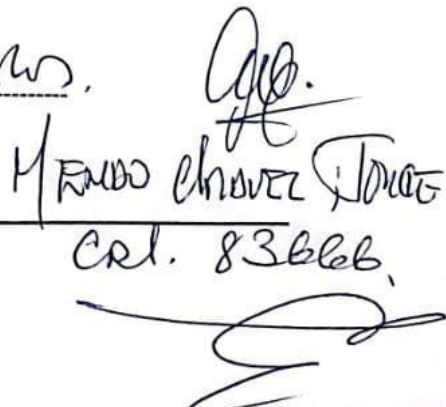 MENDO CHAVEZ JORGE
CAL. 83666